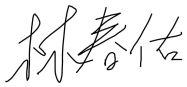 林春佑